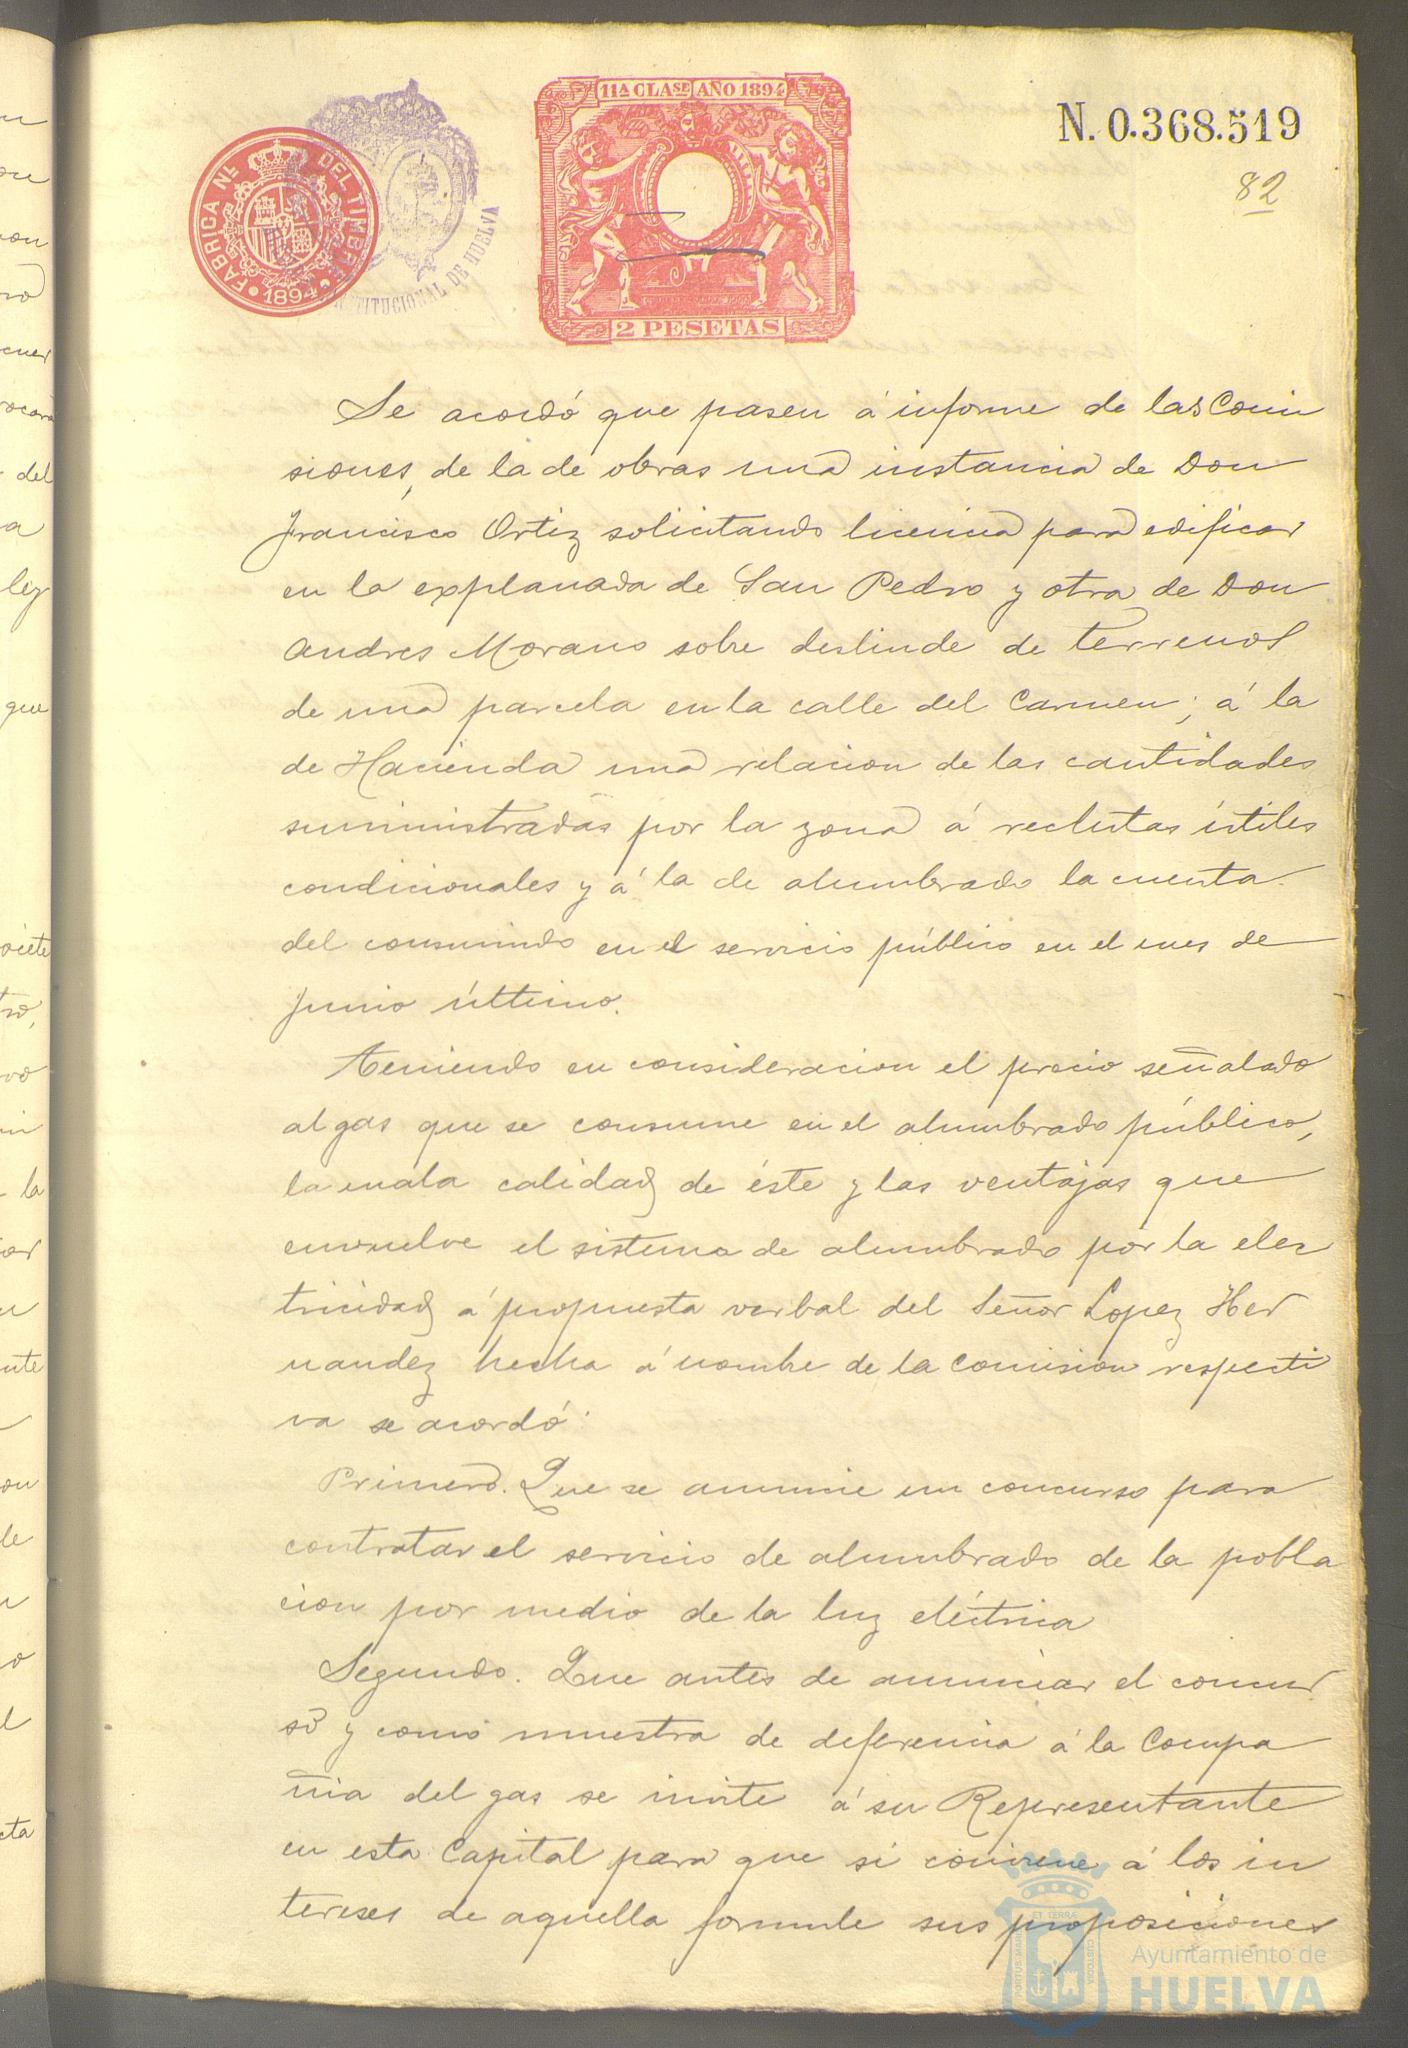 11A CLASE AÑO 1894
N. 0.368.519
82
FABRICA NL DEL TIMBRE
1894
CONSTITUCIONAL DE HUELVA
2 PESETAS
Se acordó que pasen á informe de las Comi
siones, de la de obras una instancia de Don
Francisco Ortiz solicitando licencia para edificar
en la explanada de San Pedro y otra de Don
Andres Morano sobre deslinde de terrenos
de una parcela en la calle del Carmen; á la
de Hacienda una relacion de las cantidades
suministradas por la zona á reclutas útiles
condicionales y á la de alumbrado la cuenta
del consumido en el servicio público en el mes de
Junio último.
Teniendo en consideracion el precio señalado
al gas que se consume en el alumbrado público,
la mala calidad de éste y las ventajas que
envuelve el sistema de alumbrado por la elec
tricidad á propuesta verbal del Señor Lopez Her
nandez hecha á nombre de la Comision respecti
va se acordó:
Primero. Que se anuncie un concurso para
contratar el servicio de alumbrado de la pobla
cion por medio de la luz eléctrica
Segundo. Que antes de anunciar el concur
so y como muestra de deferencia á la Compa
ñia del gas se invite á su Representante
en esta Capital para que si conviene á los in
tereses de aquella formule sus proposiciones
Ayuntamiento de
HUELVA